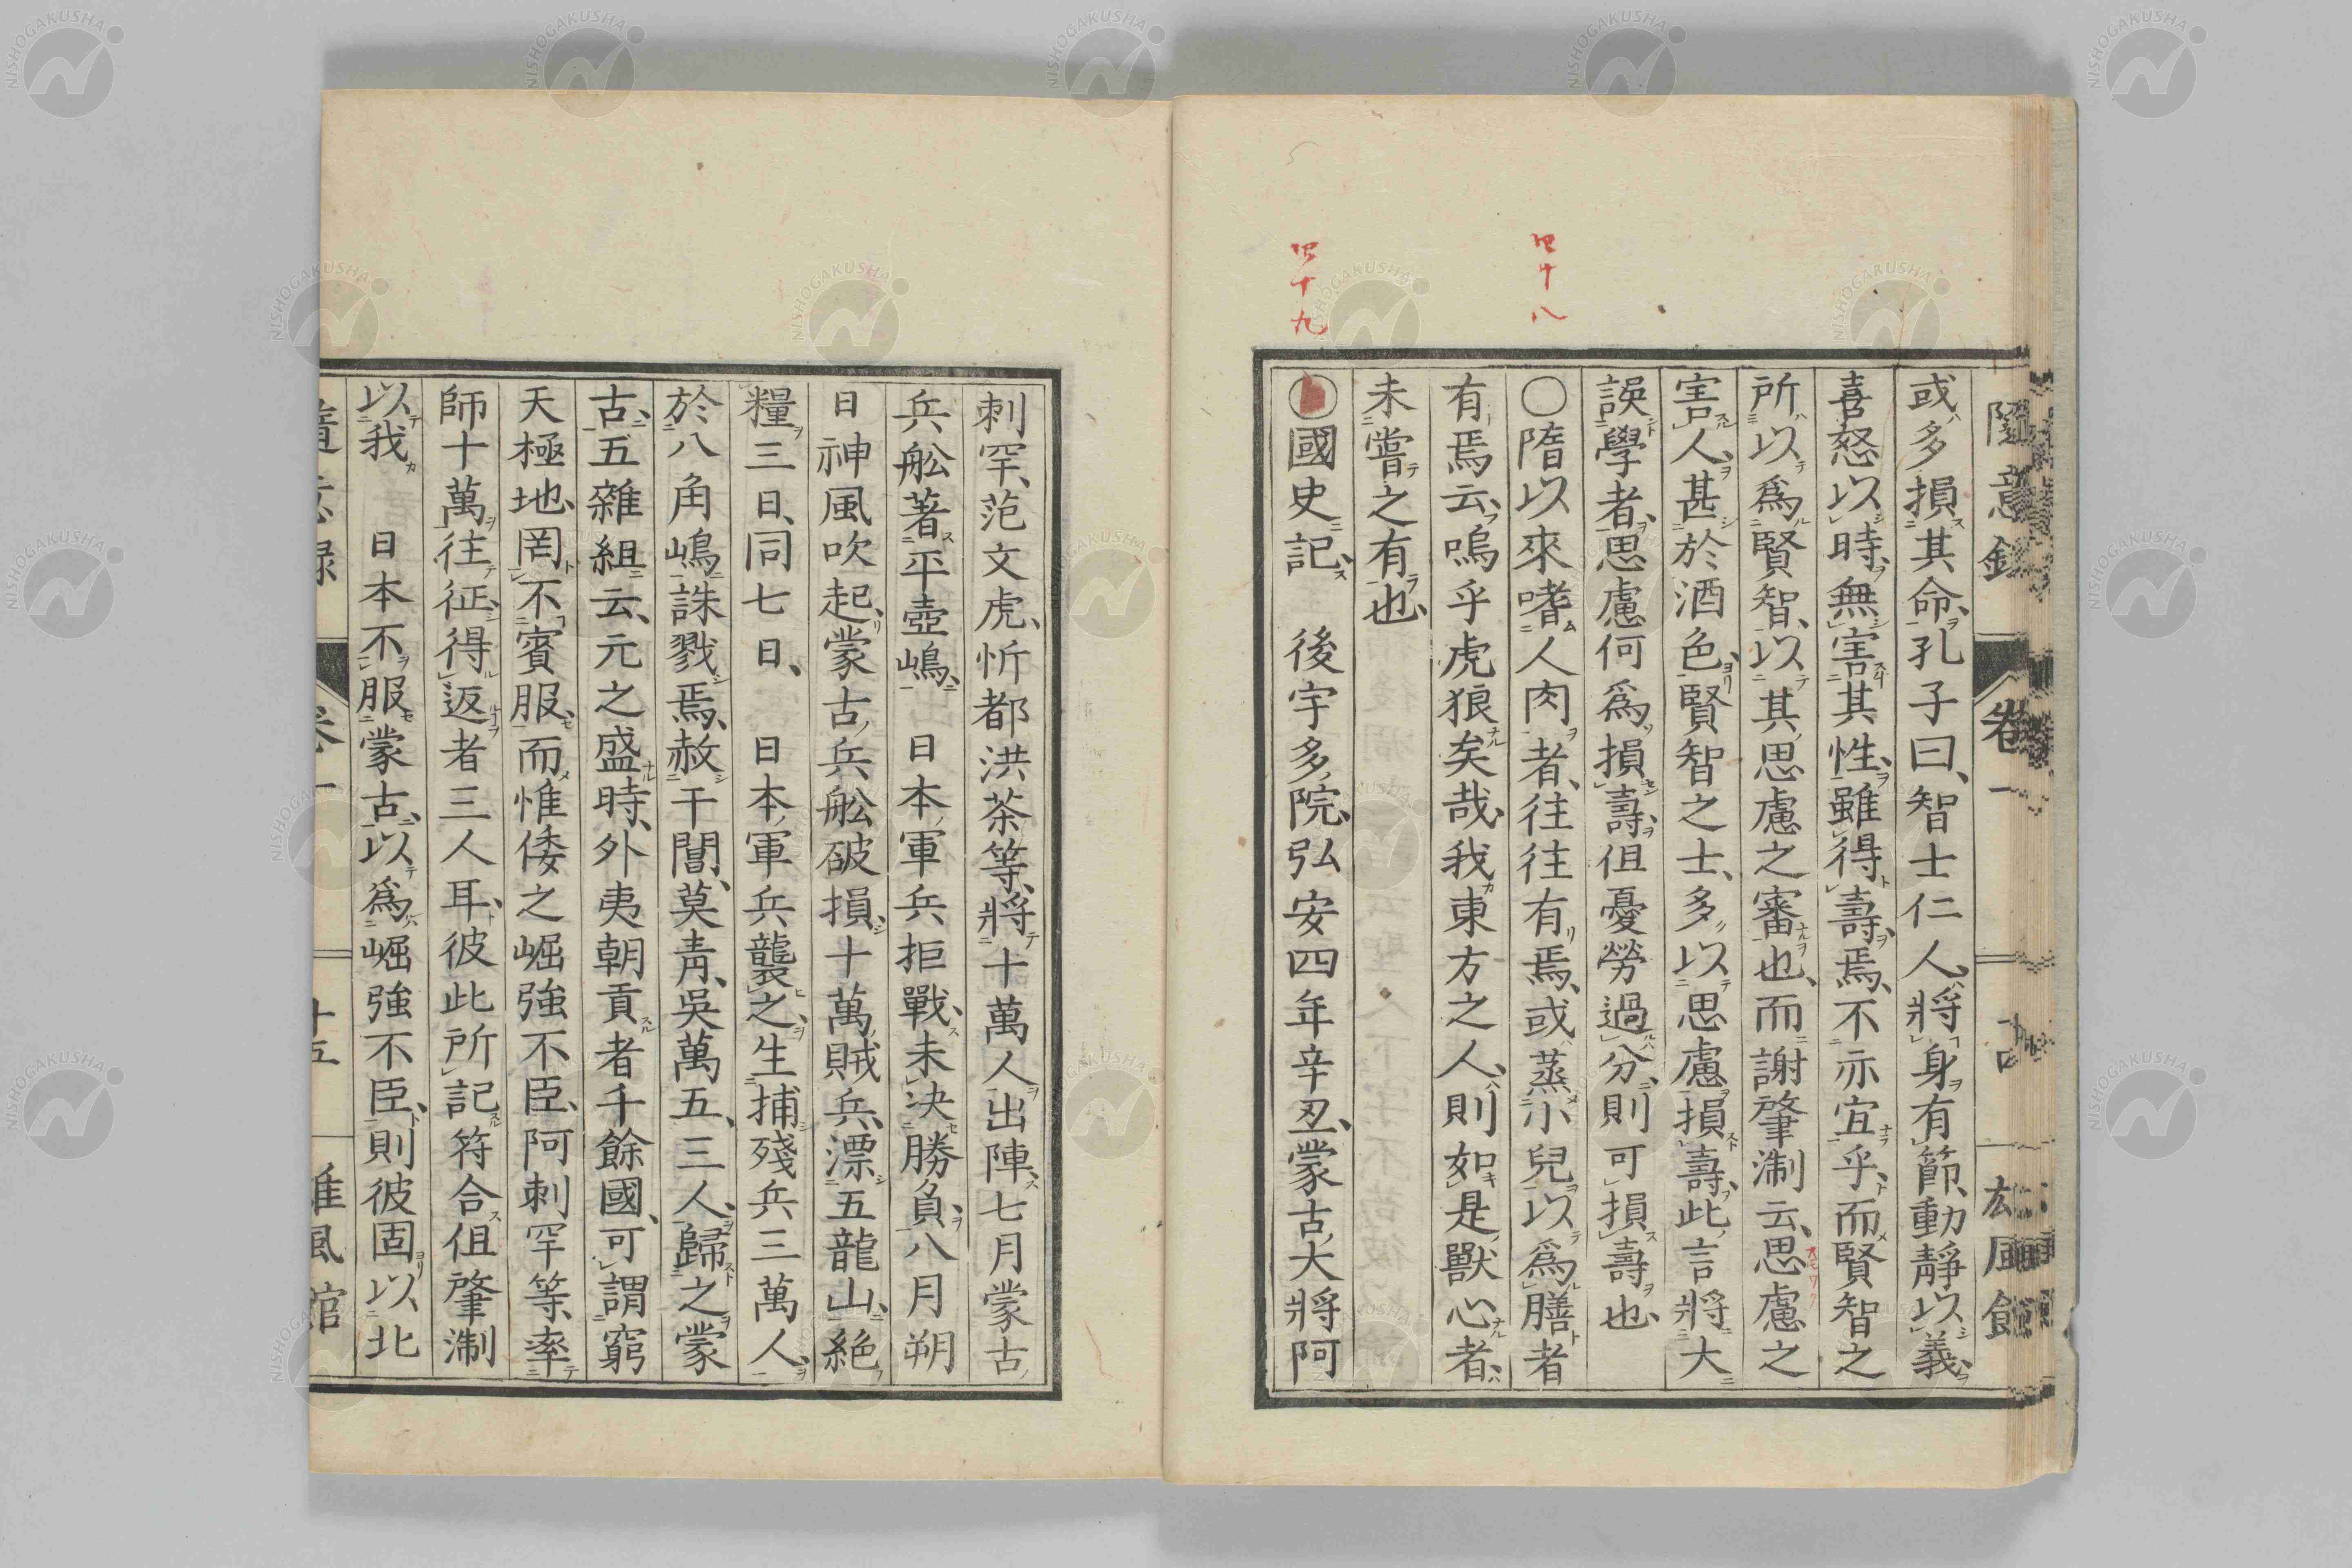 四十八
四十九
隨意錄 卷一 雄風館
或多損其命孔子曰智士仁人將身有節動靜以義
喜怒以時無害其性雖得壽焉不亦宜乎而賢智之
所以爲賢智以其思慮之審也而謝肇淛云思慮之
害人甚於酒色賢智之士多以思慮損壽此言將大
誤學者思慮何爲損壽但憂勞過分則可損壽也
〇隋以來嗜人肉者往往有焉或蒸小兒以爲膳者
有焉云嗚乎虎狼矣哉我東方之人則如是獸心者
未嘗之有也
〇國史記 後宇多院弘安四年辛丑蒙古大將阿
刺罕范文虎忻都洪茶等將十萬人出陣七月蒙古
兵舩著平壺嶋 日本軍兵拒戰未决勝負八月朔
日神風吹起蒙古兵舩破損十萬賊兵漂五龍山絶
糧三日同七日 日本軍兵襲之生捕殘兵三萬人
於八角嶋誅戮焉赦干閶莫靑吳萬五三人歸之蒙
古五雜組云元之盛時外夷朝貢者千餘國可謂窮
天極地罔不賓服而惟倭之崛強不臣阿刺罕等率
師十萬往征得返者三人耳彼此所記符合但肇淛
以我 日本不服蒙古以爲崛強不臣則彼固以北
卷一 十五
NISHOGAKUSHA